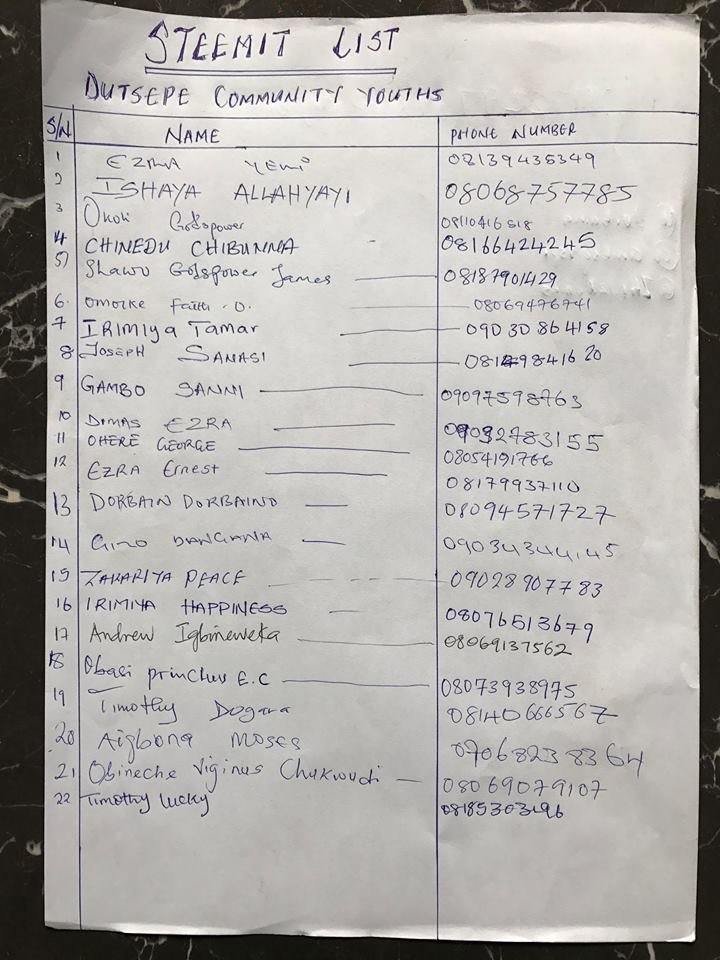 STEEMIT LIST
DUTSEPE COMMUNITY YOUTHS
S/N NAME PHONE NUMBER
1 EZRA YEMI 08139435349
2 ISHAYA ALLAHYAYI 08068757785
3 Okoli Godspower 08110416518
4 CHINEDU CHIBUNNA 08166424245
5) Shawo Godspower James 08187901429
6. Omorke Faith .O. 08069476741
7 IRIMIYA TAMAR 09030864158
8 JOSEPH SANASI
9 GAMBO SANNI 09097598763
10 DIMAS EZRA 09032783155
11 OHERE GEORGE 08054191766
12 EZRA Ernest 08179937110
13 DORBAIN DORBAIND 08094571727
14 GINO DANGANA 09034344145
15 ZAKARIYA PEACE 09028907783
16 IRIMIYA HAPPINESS 08076513679
17 Andrew Igbineweka 08069137562
18 Obasi princhus E.C 08073938975
19 Timothy Dogara 08140666567
20 Aigbona MOSES 07068238364
21 Obineche Viginus Chukwudi 08069079107
22 Timothy lucky